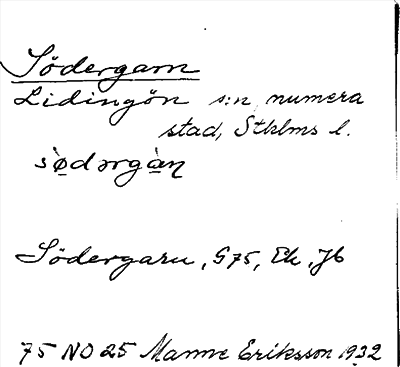 Södergarn
Lidingön s:n, numera
stad, Sthlms l.
sø̀dərgàn
Södergarn, G75, Ek, Jb
75 NO 25 Manne Eriksson 1932